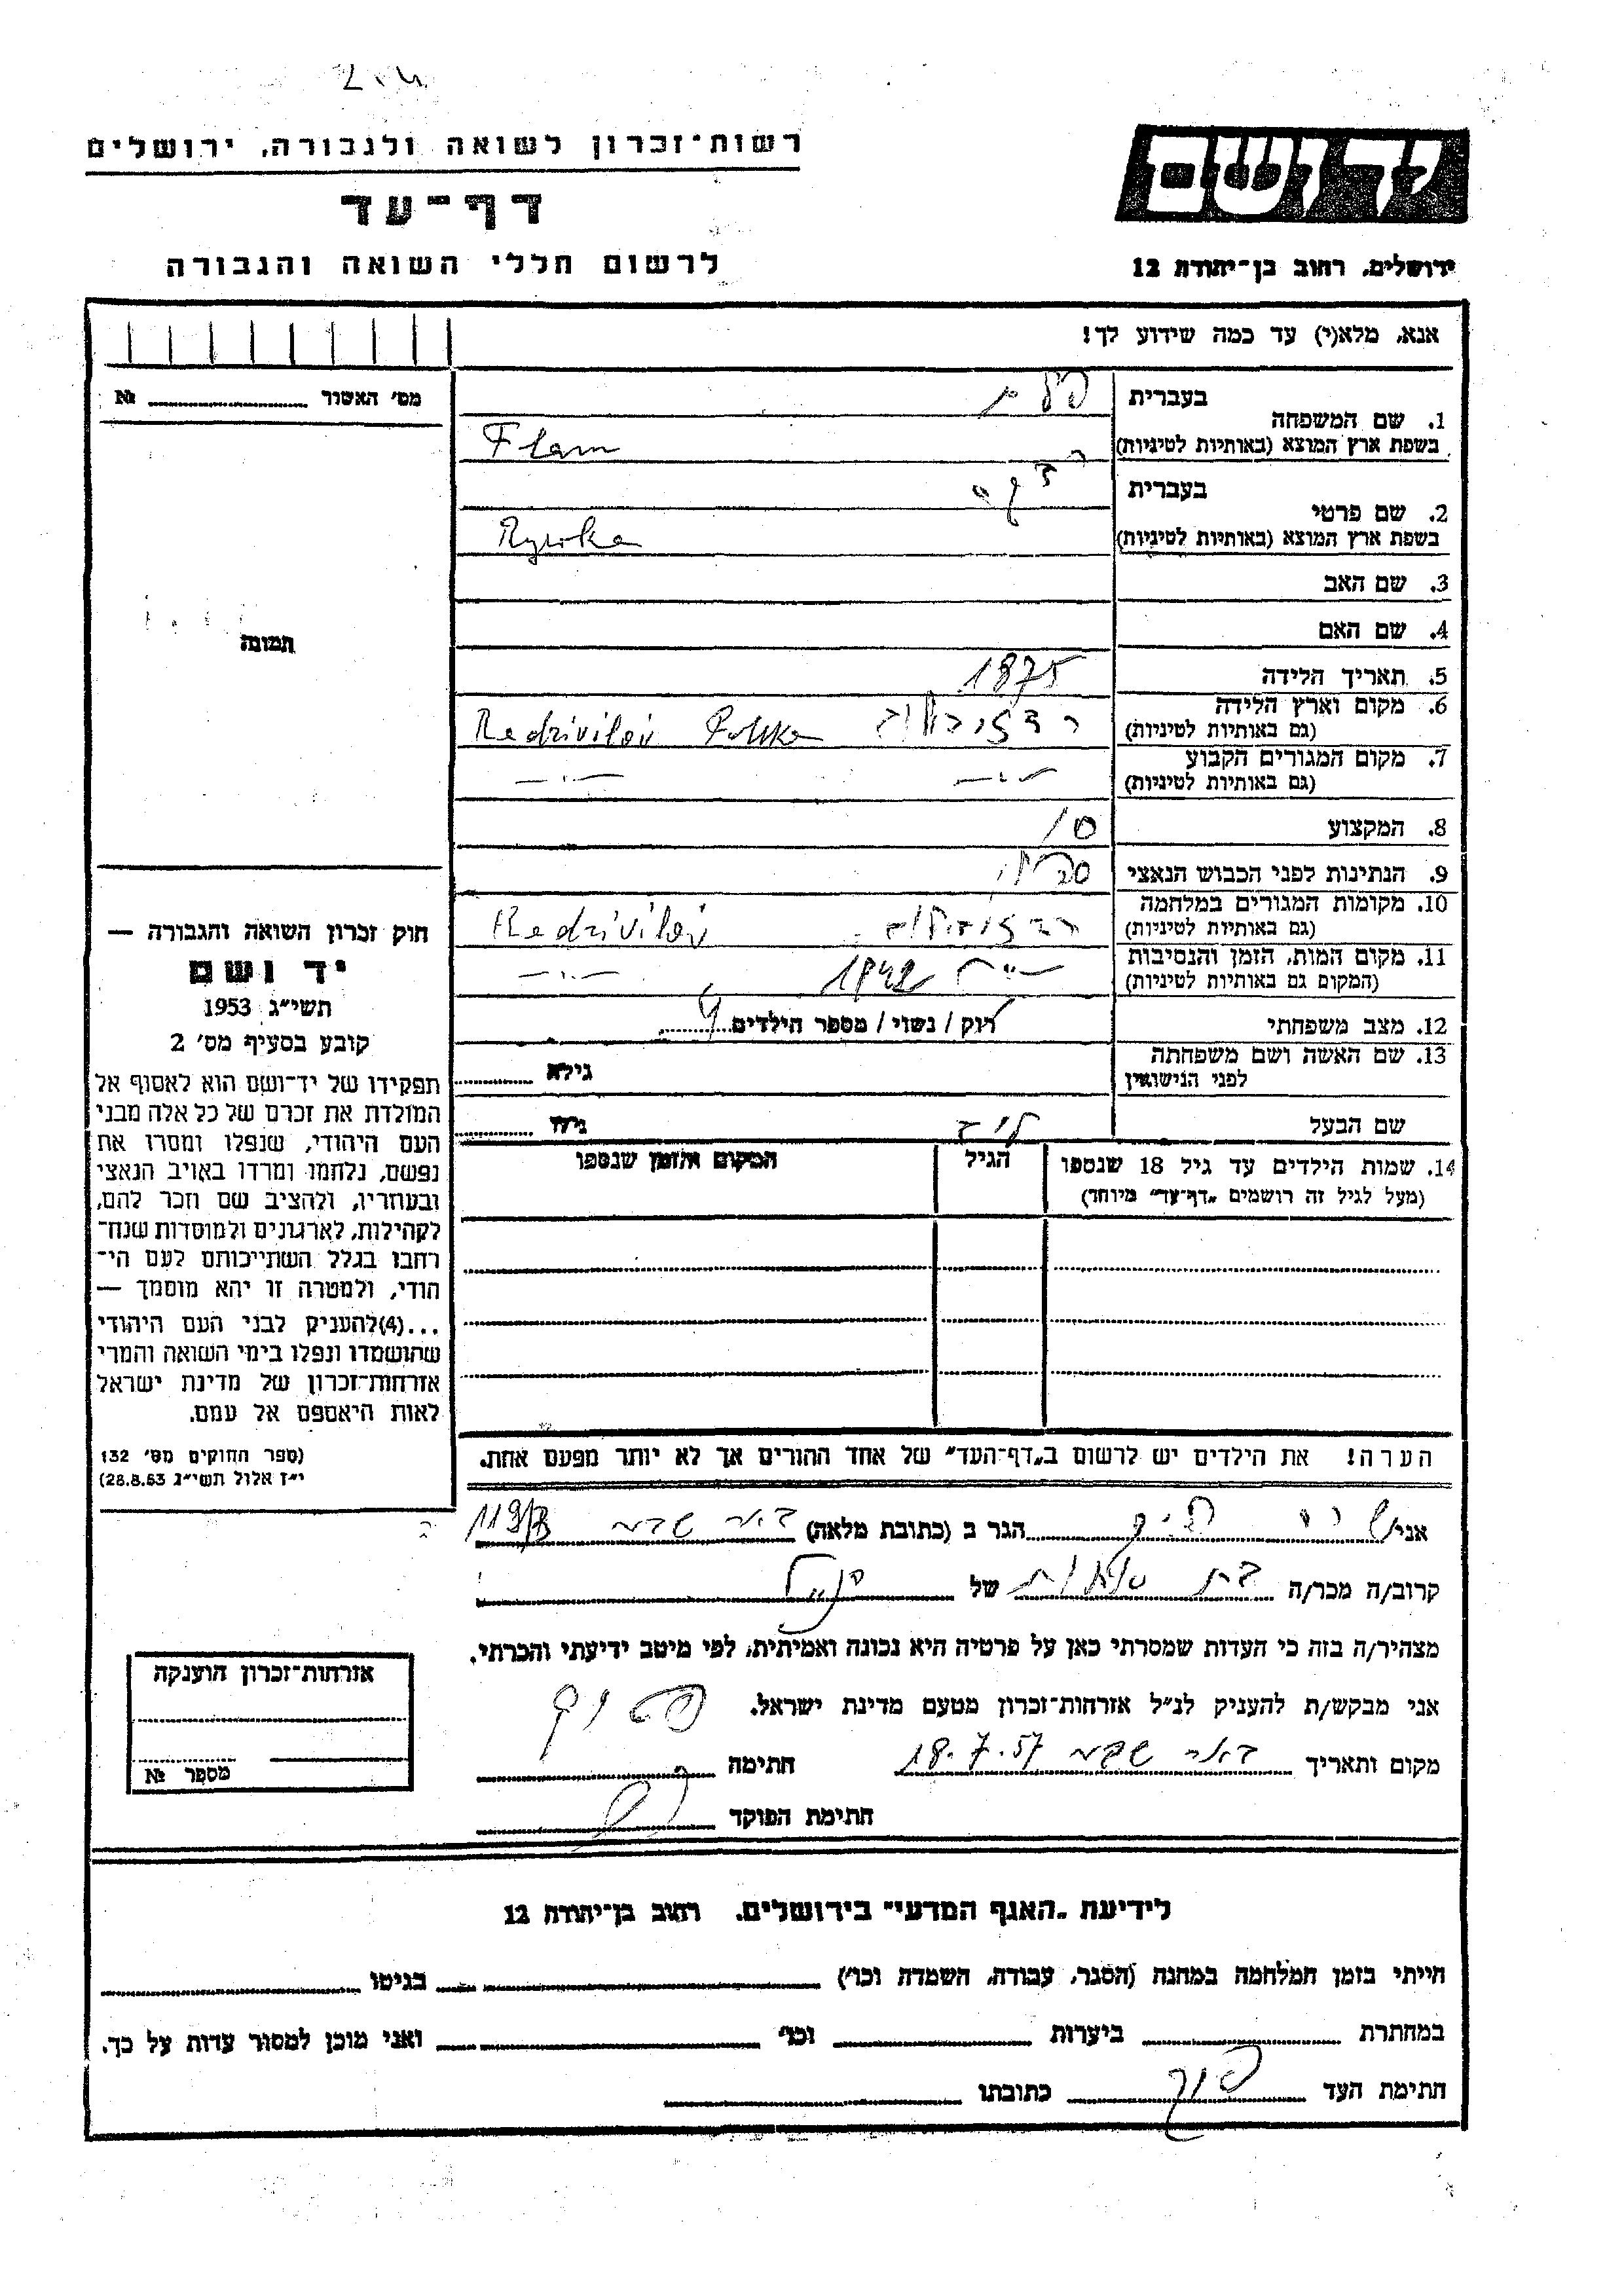 רשות־זכרון לשואה ולגבורה, ירושלים
דף־עד
לרשום חללי השואה והגבורה
יד ושם
ירושלים, רחוב בן־יהודה 12
אנא, מלא(י) עד כמה שידוע לך!
מס' האשור № 
1. שם המשפחה
בעברית פלם
בשפת ארץ המוצא (באותיות לטיניות) Flam
2. שם פרטי
בעברית רבקה
בשפת ארץ המוצא (באותיות לטיניות) Rywka
3. שם האב
4. שם האם
5. תאריך הלידה 1875
6. מקום וארץ הלידה
(גם באותיות לטיניות) רדזיבילוב Redzivilov Polska
7. מקום המגורים הקבוע
(גם באותיות לטיניות) —״— —״—
8. המקצוע
9. הנתינות לפני הכבוש הנאצי
10. מקומות המגורים במלחמה
(גם באותיות לטיניות) רדזיבילוב Redzivilov
11. מקום המות, הזמן והנסיבות
(המקום גם באותיות לטיניות) —״— 1942 —״—
12. מצב משפחתי רוק / נשוי / מספר הילדים 4
13. שם האשה ושם משפחתה
לפני הנישואין גילא
שם הבעל גילו
14. שמות הילדים עד גיל 18 שנספו
(מעל לגיל זה רושמים „דף־עד" מיוחד)
הגיל
המקום והזמן שנספו
הערה! את הילדים יש לרשום ב„דף־העד" של אחד ההורים אך לא יותר מפעם אחת.
תמונה
חוק זכרון השואה והגבורה —
יד ושם
תשי״ג 1953
קובע בסעיף מס' 2
תפקידו של יד־ושם הוא לאסוף אל
המולדת את זכרם של כל אלה מבני
העם היהודי, שנפלו ומסרו את
נפשם, נלחמו ומרדו באויב הנאצי
ובעוזריו, ולהציב שם וזכר להם,
לקהילות, לארגונים ולמוסדות שנח־
רחבו בגלל השתייכותם לעם הי־
הודי, ולמטרה זו יהא מוסמך —
...(4)להעניק לבני העם היהודי
שהושמדו ונפלו בימי השואה והמרי
אזרחות־זכרון של מדינת ישראל
לאות היאספם אל עמם.
(ספר החוקים מס' 132
י״ז אלול תשי״ג 28.8.53)
אני הגר ב (כתובת מלאה) באר שבע
קרוב/ה מכר/ה של
מצהיר/ה בזה כי העדות שמסרתי כאן על פרטיה היא נכונה ואמיתית, לפי מיטב ידיעתי והכרתי.
אני מבקש/ת להעניק לנ״ל אזרחות־זכרון מטעם מדינת ישראל.
מקום ותאריך באר שבע 18.7.57 חתימה
חתימת הפוקד
אזרחות־זכרון הוענקה
מספר №
לידיעת „האגף המדעי" בירושלים, רחוב בן־יהודה 12
הייתי בזמן המלחמה במחנה (הסגר, עבודה, השמדה וכו') בגיטו
במחתרת ביערות וכו' ואני מוכן למסור עדות על כך.
חתימת העד כתובתו